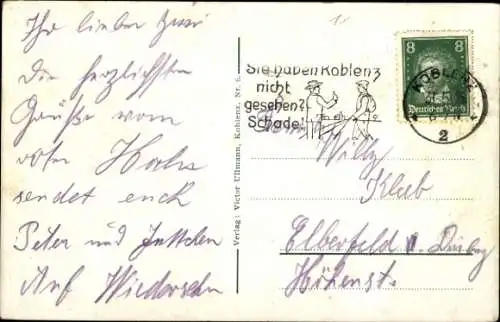 Ihr lieben
Die herzlichsten
Grüße vom
sendet euch
Peter und
Auf Wiedersehn
Verlag: Victor Ullmann, Koblenz, Nr. 6.
Sie haben Koblenz
nicht
gesehen?
Schade!
8 8
Deutsches Reich
KOBLENZ
2
Willy
Kleb
Elberfeld
Höhenst.